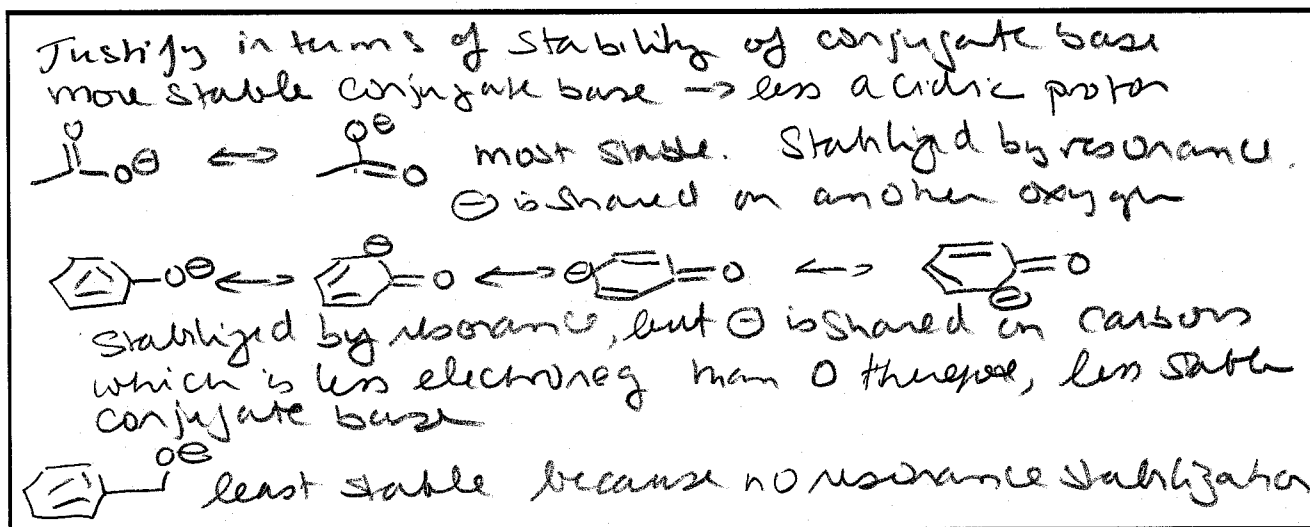 Justify in terms of stability of conjugate base
more stable conjugate base → less acidic proton
O O⊖ ↔ O⊖ O most stable. Stabilized by resonance.
⊖ is shared on another oxygen
O⊖ ↔ ⊖ O ↔ ⊖ O ↔ ⊖ O
stabilized by resonance, but ⊖ is shared on carbons
which is less electroneg than O therefore, less stable
conjugate base
O⊖ least stable because no resonance stabilization